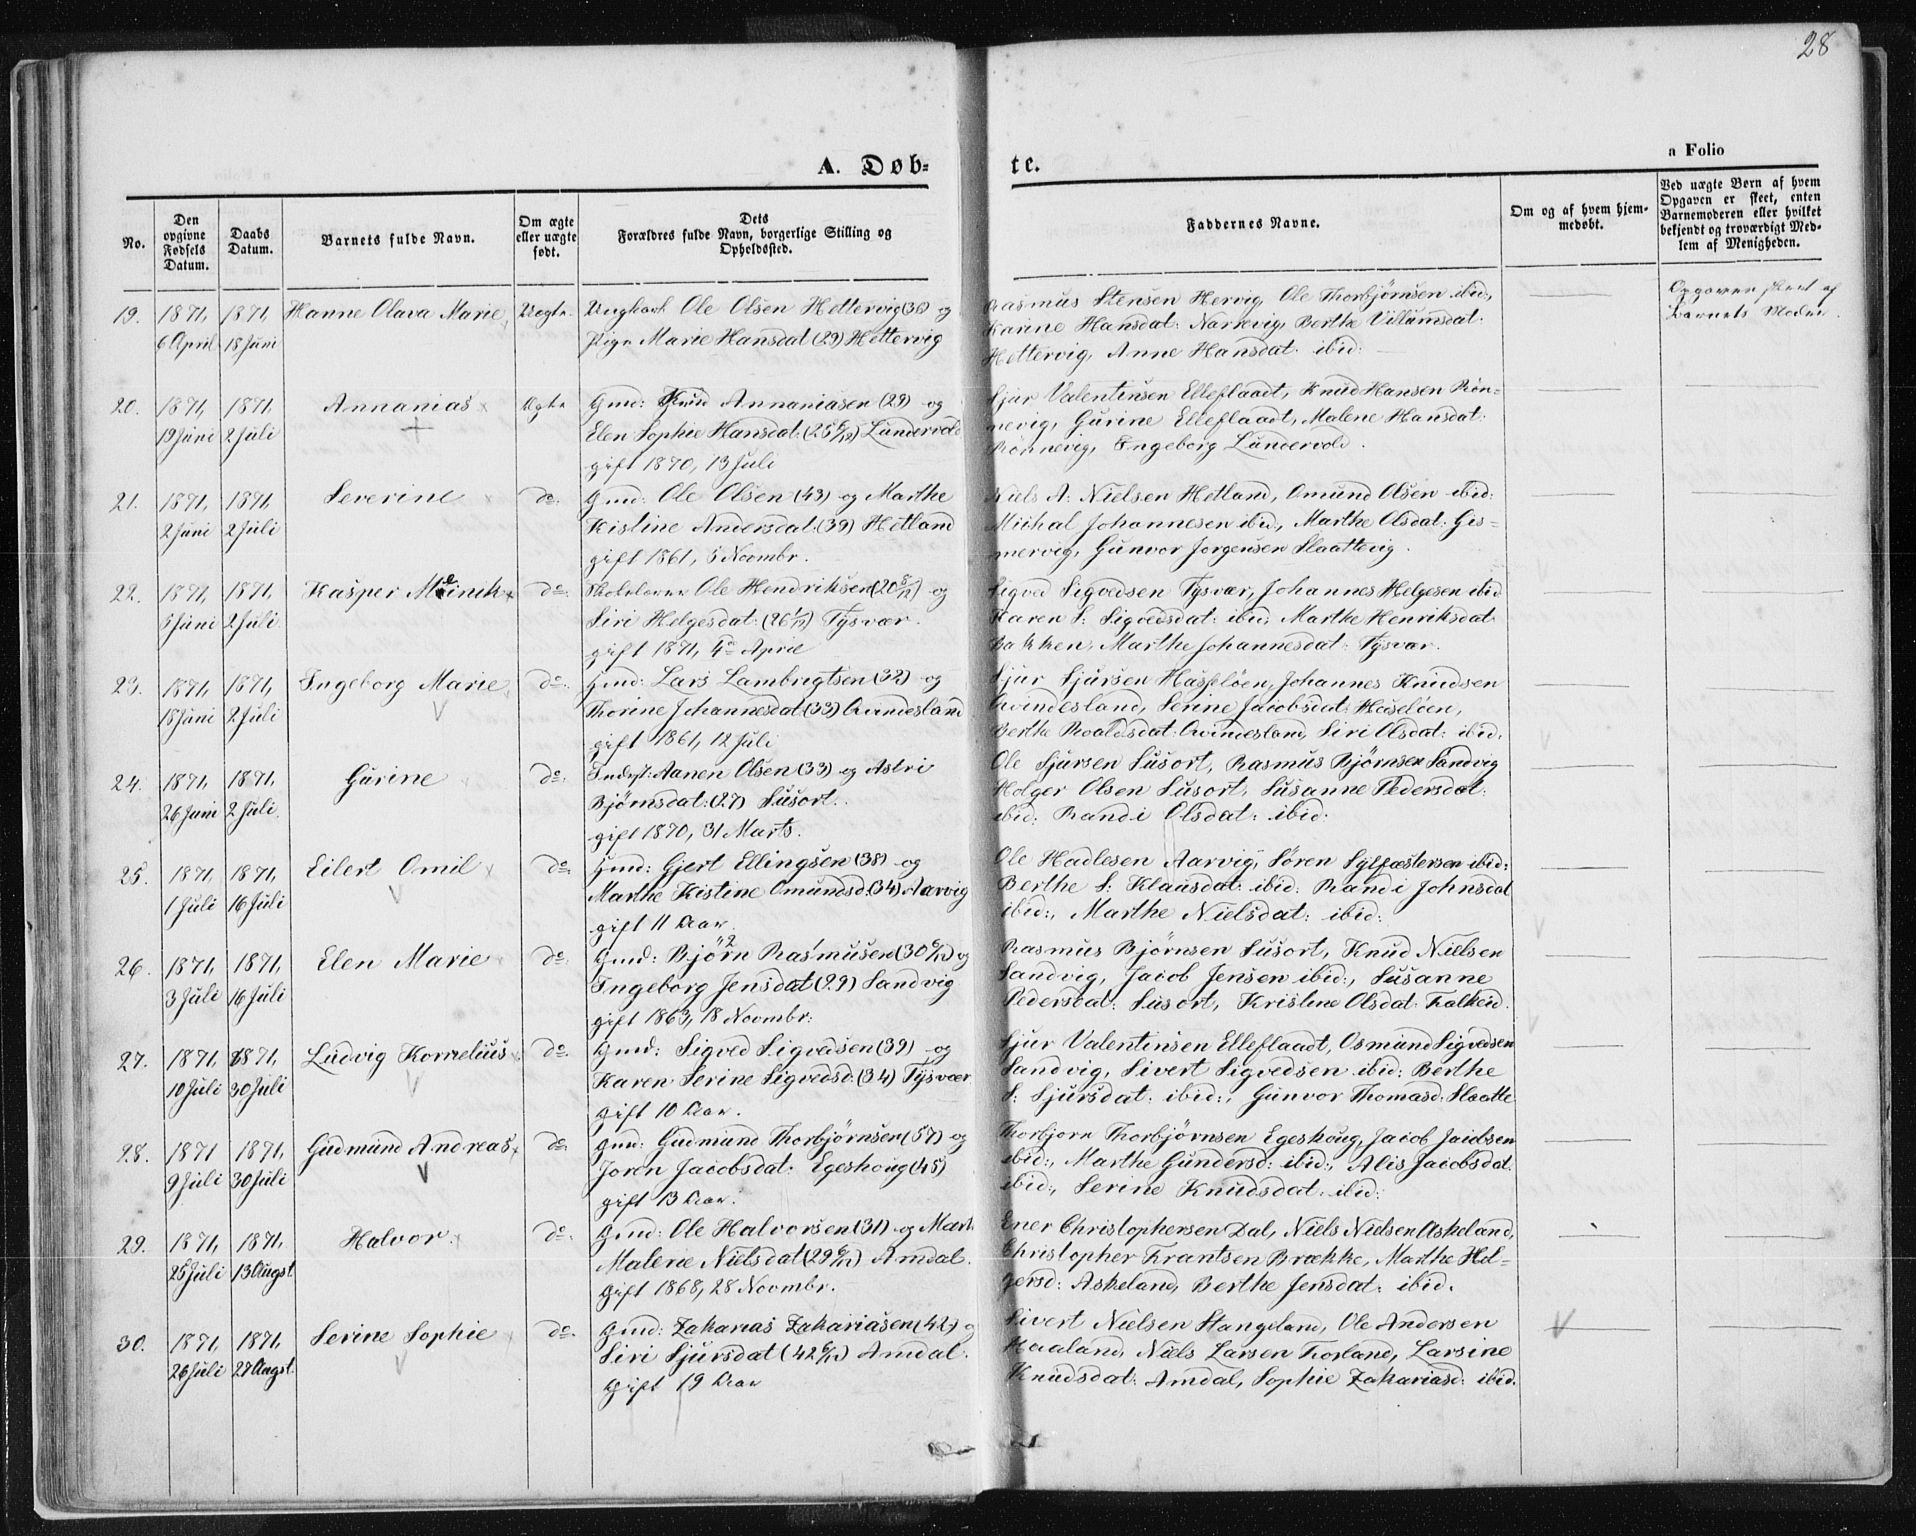 28
A. Døb-
te.
a Folio
No.
Den opgivne Fødsels Datum.
Daabs Datum.
Barnets fulde Navn.
Om ægte eller uægte født.
Dets
Forældres fulde Navn, borgerlige Stilling og Opholdssted.
Faddernes Navne.
Om og af hvem hjemmedøbt.
Ved uægte Børn af hvem Opgaven er skeet, enten Barnemoderen eller hvilket bekjendt og troværdigt Medlem af Menigheden.
19. 1871, 1871, Hanne Olava Marie Uægte. Ungkarl Ole Olsen Hettervig (36) og
6 April 18 Juni Pige Marie Hansdat (29) Hettervig
Rasmus Stensen Hervig, Ole Thorbjørnsen ibid,
Karine Hansdat: Narkevig, Berthe Villumsdat:
Hettervig, Anne Hansdat: ibid:
Opgaven skeet af
Barnets Moder.
20. 1871, 1871, Annanias Ægte Gmd: Knud Annaniasen (29) og
19 Juni 2 Juli Elen Sophie Hansdat: (25 6/12) Lundervold
gift 1870, 13 Juli
Sjur Valentinsen Elleflaadt, Knud Hansen Røn-
nevig, Gurine Elleflaadt, Malene Hansdat:
Rønnevig, Ingeborg Lundervold.
21. 1871, 1871, Severine do. Gmd: Ole Olsen (43) og Marthe
2 Juni 2 Juli Kistine Andersdat: (39) Hetland
gift 1861, 5 Novmbr.
Niels A: Nielsen Hetland, Omund Olsen ibid:
Michal Johannesen ibid, Marthe Olsdat: Gis-
nervig, Gunvor Jorgensen Slaattevig.
22. 1871, 1871, Kasper Meinik do. Skolelærer Ole Hendriksen (20 8/12) og
5 Juni 2 Juli Siri Helgesdat: (26 1/12) Tysvær.
gift 1871, 4de April
Sigved Sigvedsen Tysvær, Johannes Helgesen ibid
Karen S: Sigvedsdat: ibid, Marthe Henriksdat:
Bakken, Marthe Johannesdat: Tysvær.
23. 1871, 1871, Ingeborg Marie do. Gmd: Lars Lambrigtsen (32) og
18 Juni 2 Juli Thorine Johannesdat: (33) Qvindesland
gift 1861, 12 Juli
Sjur Sjursen Hasseløen, Johannes Knudsen
Qvindesland, Serine Jacobsdat: Haseløen,
Berthe Roaldsdat: Qvindesland, Siri Olsdat: ibid.
24. 1871, 1871, Gurine do. Indrst: Aanen Olsen (33) og Astri
26 Juni 2 Juli Bjørnsdat: (27) Susort.
gift 1870, 31 Marts.
Ole Sjursen Susort, Rasmus Bjørnsen Sandvig
Holger Olsen Susort, Susanne Pedersdat:
ibid: Randi Olsdat: ibid:
25. 1871, 1871, Eilert Omil do. Gmd: Gjert Ellingsen (38) og
1 Juli 16 Juli Marthe Kistine Omundsd: (34) Aarvig
gift 11 Aar.
Ole Hadlesen Aarvig, Søren Sylfæstersen ibid:
Berthe S: Klausdat: ibid: Randi Johnsdat
ibid:, Marthe Nielsdat: ibid:
26. 1871, 1871, Elen Marie do. Gmd: Bjørn Rasmusen (30 6/12) og
3 Juli 16 Juli Ingeborg Jensdat (29) Sandvig
gift 1863, 18 Novmbr:
Rasmus Bjørnsen Susort, Knud Nielsen
Sandvig, Jacob Jensen ibid:, Susanne
Pedersdat: Susort, Kristine Olsdat: Falkeid.
27. 1871, 1871, Ludvig Kornelius do. Gmd: Sigved Sigvedsen (39) og
10 Juli 30 Juli Karen Serine Sigvedsd: (34) Tysvær
gift 10 Aar.
Sjur Valentinsen Elleflaadt, Osmund Sigvedsen
Sandvig, Sivert Sigvedsen ibid: Berthe
S: Sjursdat: ibid:, Gunvor Thomasd: Slaatte
28. 1871 1871, Gudmund Andreas do. Gmd: Gudmund Thorbjørnsen (57) og
9 Juli 30 Juli Joren Jacobsdat: Egeshoug (45)
gift 13 Aar.
Thorbjørn Thorbjørnsen Egeshoug, Jacob Jacobsen
ibid:, Marthe Gundersd: ibid:, Alis Jacobsdat:
ibid:, Serine Knudsdat: ibid:
29. 1871, 1871, Halvor. do. Gmd: Ole Halvorsen (31) og Mart
25 Juli 13 Augst Malene Nielsdat (29 6/12) Amdal.
gift 1868, 28 Novmbr.
Ener Christophersen Dal, Niels Nielsen Askeland,
Christopher Frantsen Brække, Marthe Hol-
gersd: Askeland, Berthe Jensdat: ibid.
30. 1871, 1871, Serine Sophie do. Gmd: Zakarias Zakariasen (42) og
26 Juli 27 Augst. Siri Sjursdat (42 6/12) Amdal.
gift 19 Aar
Sivert Nielsen Stangeland, Ole Andersen
Haaland, Niels Larsen Førland, Larsine
Knudsdat: Amdal, Sophie Zakariasd: ibid.